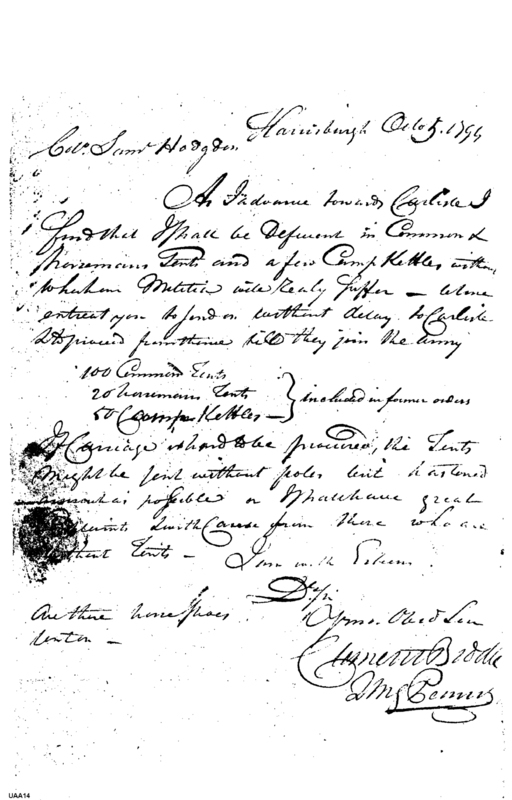 Harrisburgh Octo 5. 1794
Col. Saml Hodgdon
As I advance towards Carlisle I
find that I shall be Deficient in Common &
Horsemans Tents and a few Camp Kettles without
which our Militia will realy suffer —
entreat you to send on without delay to Carlisle
& to proceed from thence till they join the Army
100 Common Tents
20 horsemans Tents
50 Camp Kettles —
included in former orders
If Carriage is hard to be procured, the Tents
might be sent without poles but hastened
as much as possible or I shall have great
Complaints & with Cause from those who are
without Tents — I am with Esteem
Dr Sir
Are there horse Shoes
sent on —
Yr mo. Obed Ser
Clement Biddle
QMG Pennsy
UAA14